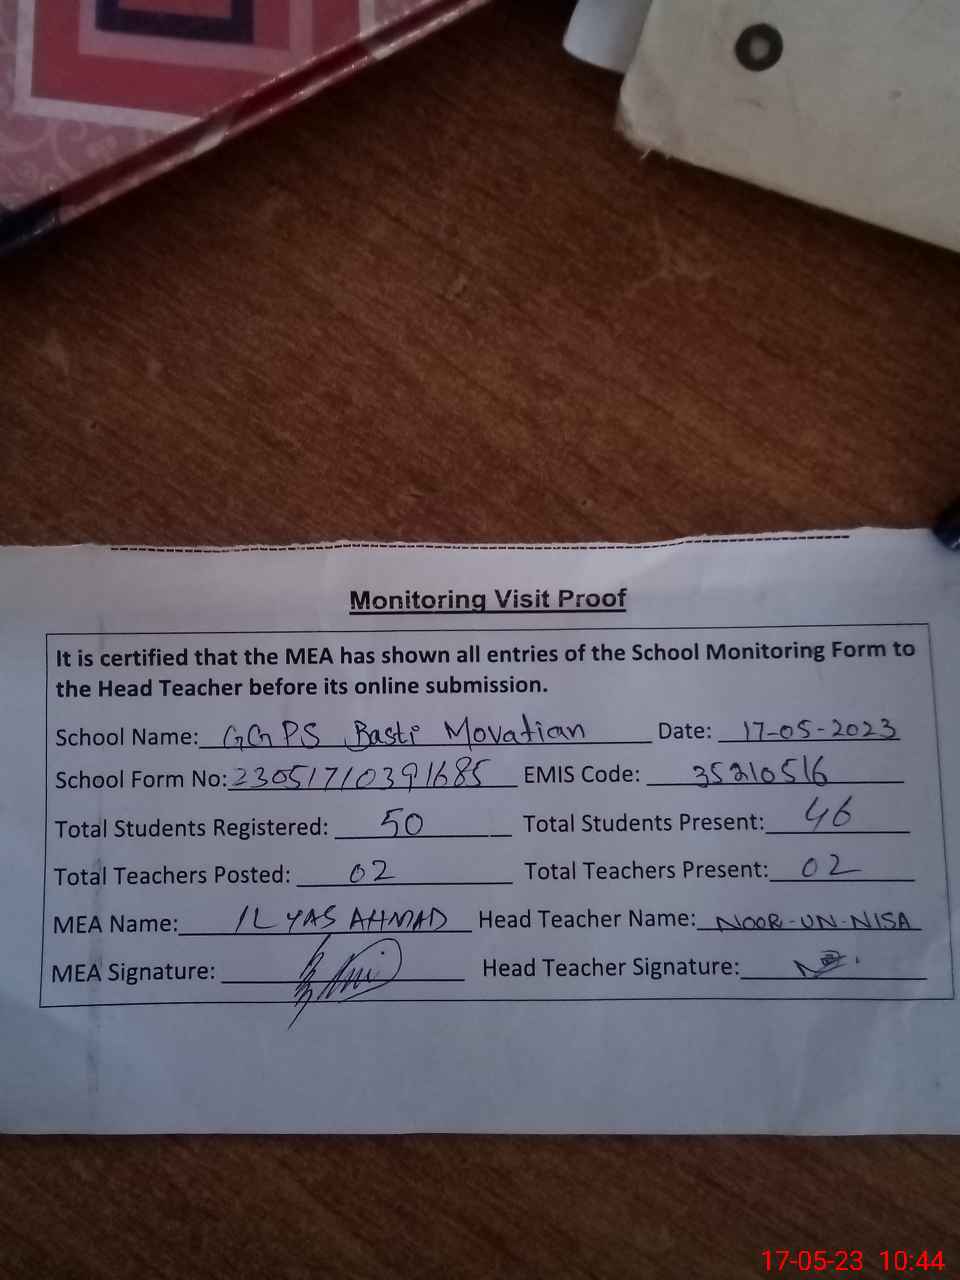 Monitoring Visit Proof
It is certified that the MEA has shown all entries of the School Monitoring Form to
the Head Teacher before its online submission.
School Name: GGPS Basti Movatian Date: 17-05-2023
School Form No: 23051710391685 EMIS Code: 35210516
Total Students Registered: 50 Total Students Present: 46
Total Teachers Posted: 02 Total Teachers Present: 02
MEA Name: ILYAS AHMAD Head Teacher Name: NOOR-UN-NISA
MEA Signature: Head Teacher Signature:
17-05-23 10:44